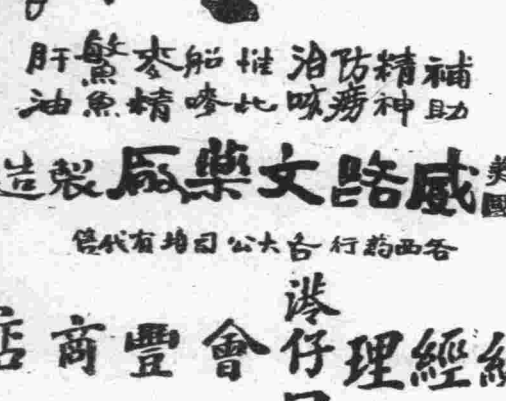 補助精神防癆治咳惟比船嘜麥精鰵魚肝油
美國威路文藥廠製造
各西葯行各大公司均有代售
經理港仔
會豐商店